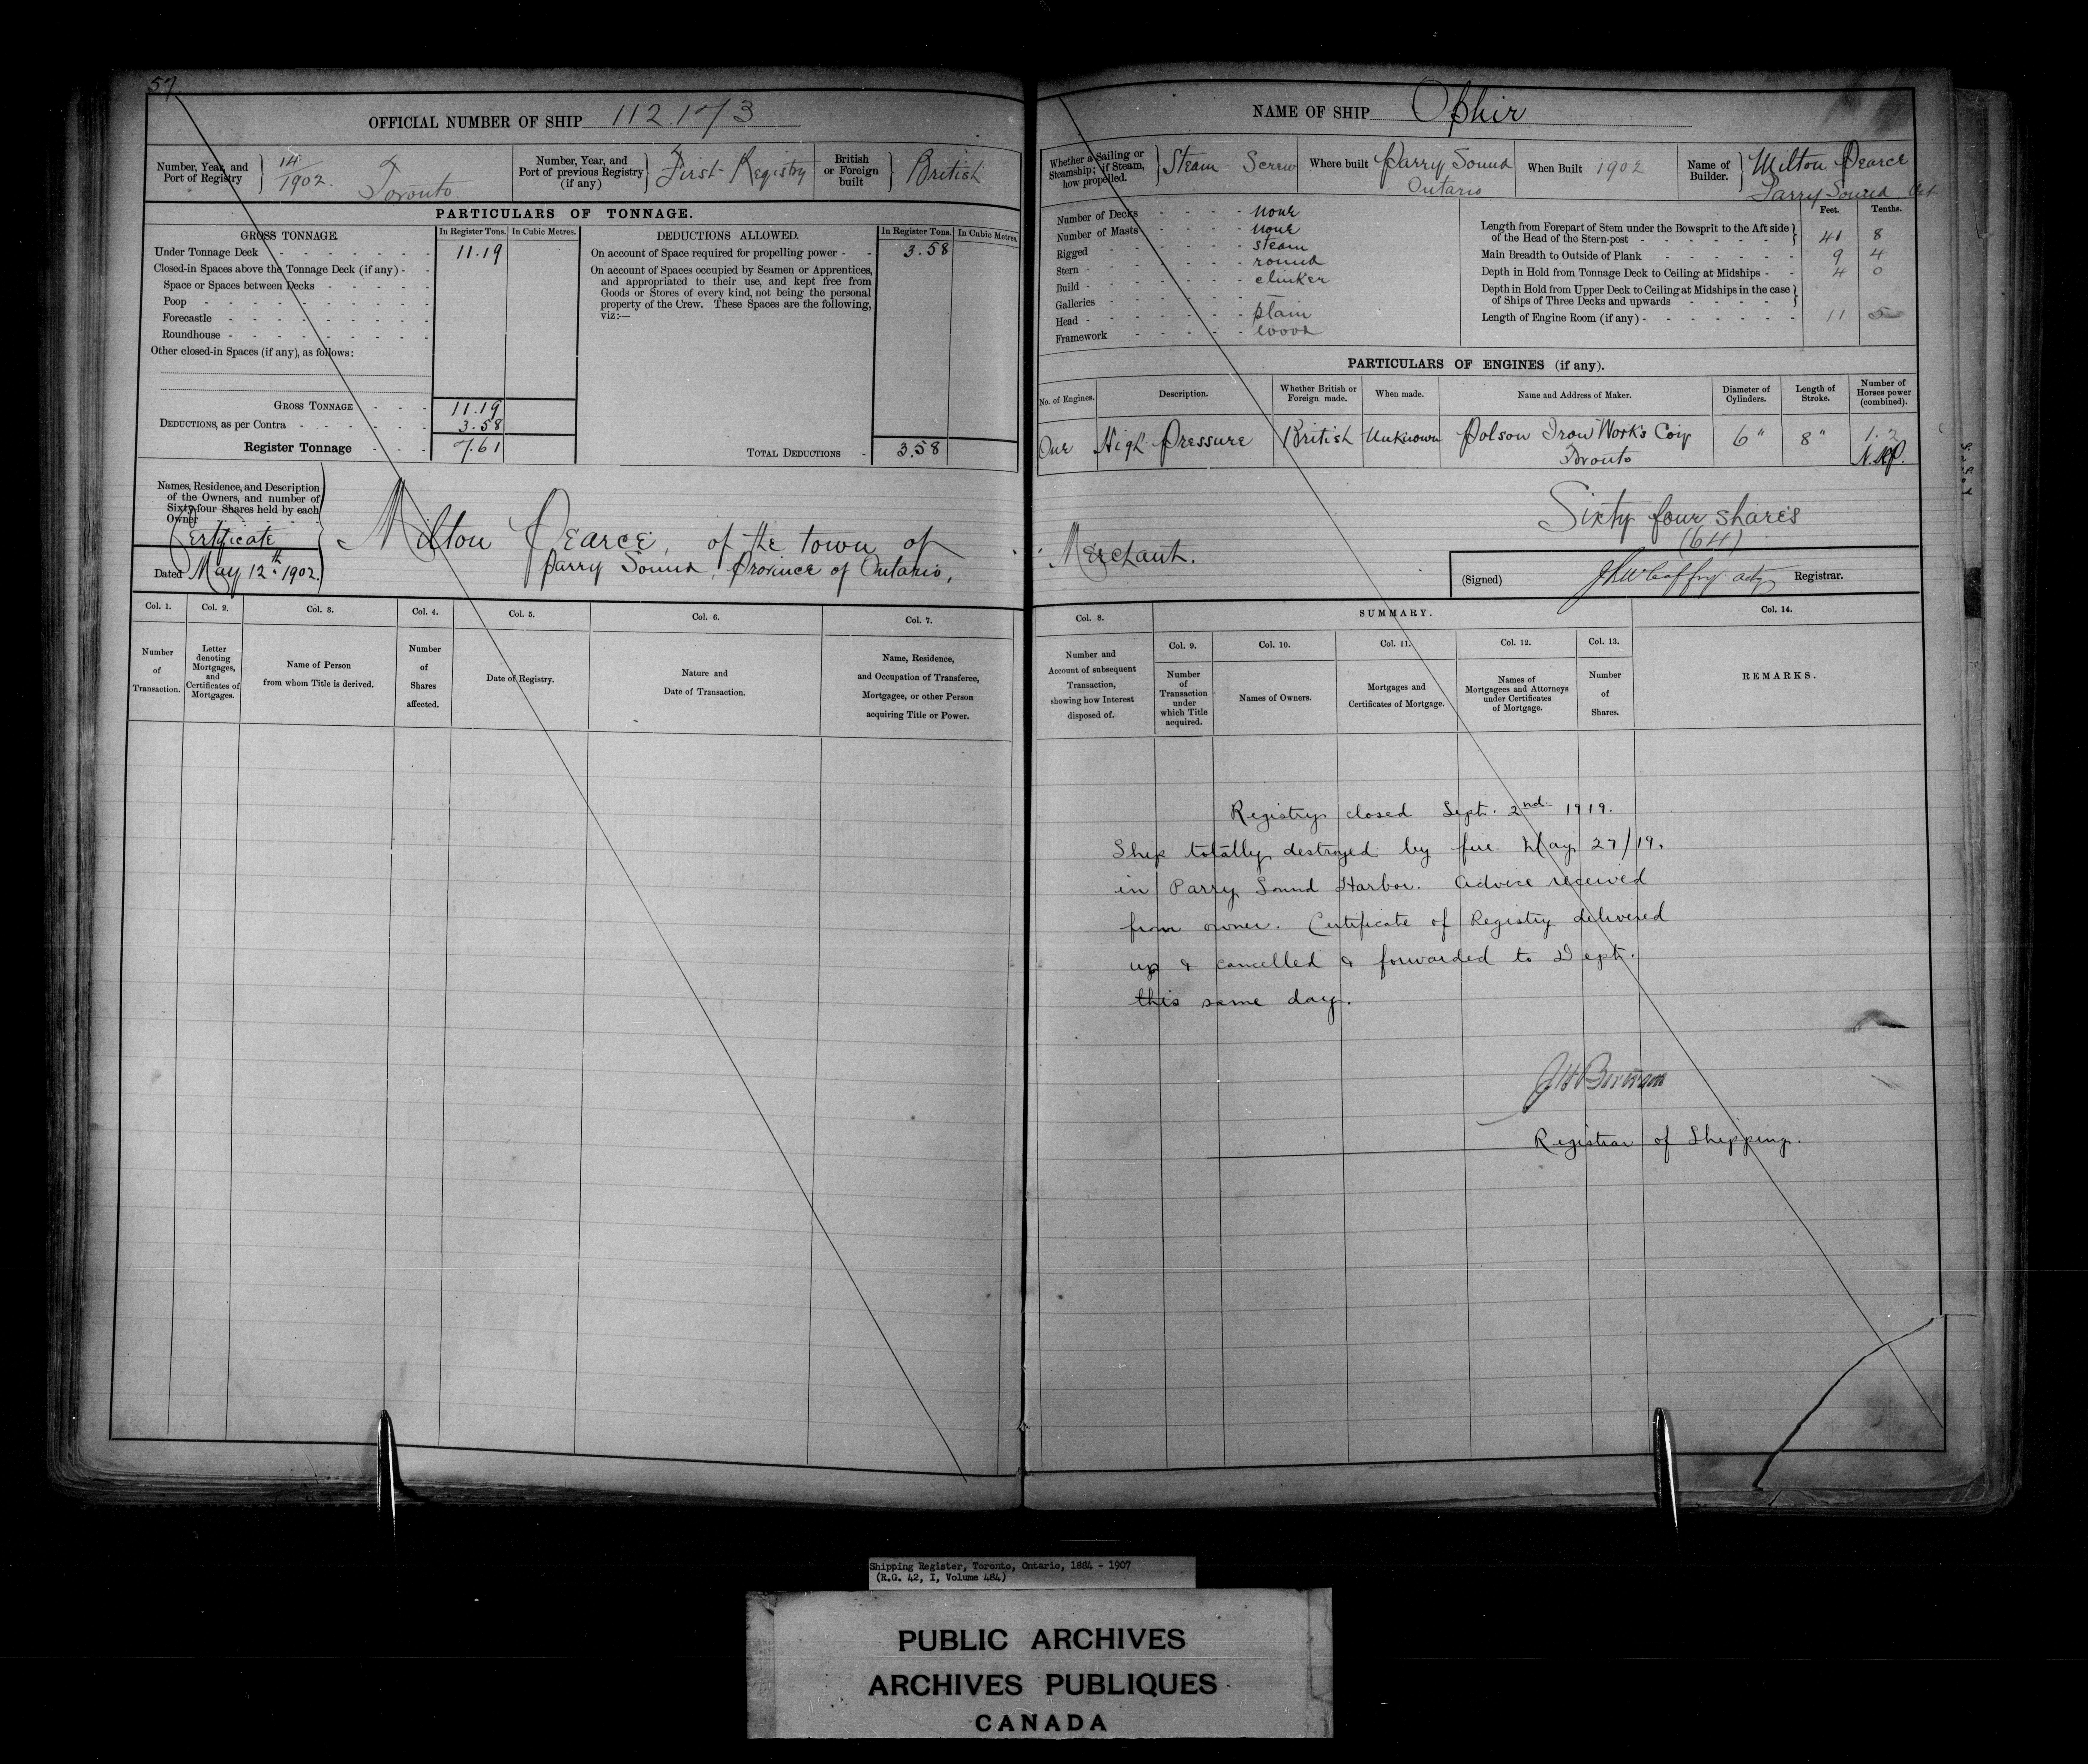 57
OFFICIAL NUMBER OF SHIP 112.173
Number, Year, and Port of Registry } 14/1902. Toronto
Number, Year, and Port of previous Registry (if any) } First Registry
British or Foreign built } British
PARTICULARS OF TONNAGE.
GROSS TONNAGE. In Register Tons. In Cubic Metres.
Under Tonnage Deck 11.19
Closed-in Spaces above the Tonnage Deck (if any)
Space or Spaces between Decks
Poop
Forecastle
Roundhouse
Other closed-in Spaces (if any), as follows:
GROSS TONNAGE 11.19
DEDUCTIONS, as per Contra 3.58
Register Tonnage 7.61
DEDUCTIONS ALLOWED. In Register Tons. In Cubic Metres.
On account of Space required for propelling power 3.58
On account of Spaces occupied by Seamen or Apprentices,
and appropriated to their use, and kept free from
Goods or Stores of every kind, not being the personal
property of the Crew. These Spaces are the following,
viz:—
TOTAL DEDUCTIONS 3.58
Names, Residence, and Description
of the Owners, and number of
Sixty-four Shares held by each
Owner
Certificate
Dated May 12th 1902.
Milton Pearce, of the town of
Parry Sound, Province of Ontario,
Col. 1. Col. 2. Col. 3. Col. 4. Col. 5. Col. 6. Col. 7.
Number of Transaction.
Letter denoting Mortgages, and Certificates of Mortgages.
Name of Person from whom Title is derived.
Number of Shares affected.
Date of Registry.
Nature and Date of Transaction.
Name, Residence, and Occupation of Transferee, Mortgagee, or other Person acquiring Title or Power.
NAME OF SHIP Ophir
Whether a Sailing or Steamship; if Steam, how propelled. } Steam Screw
Where built Parry Sound Ontario
When Built 1902
Name of Builder. } Milton Pearce Parry Sound Ont
Number of Decks none
Number of Masts none
Rigged steam
Stern round
Build clinker
Galleries —
Head plain
Framework wood
Feet. Tenths.
Length from Forepart of Stem under the Bowsprit to the Aft side
of the Head of the Stern-post 41 8
Main Breadth to Outside of Plank 9 4
Depth in Hold from Tonnage Deck to Ceiling at Midships 4 0
Depth in Hold from Upper Deck to Ceiling at Midships in the case
of Ships of Three Decks and upwards
Length of Engine Room (if any) 11 5
PARTICULARS OF ENGINES (if any).
No. of Engines. Description. Whether British or Foreign made. When made. Name and Address of Maker. Diameter of Cylinders. Length of Stroke. Number of Horses power (combined).
One High Pressure British Unknown Polson Iron Works Coy Toronto 6" 8" 1.2 N.H.P.
Sixty four shares
(64)
Merchant.
(Signed) Registrar.
Col. 8. SUMMARY. Col. 14.
Col. 9. Col. 10. Col. 11. Col. 12. Col. 13.
Number and Account of subsequent Transaction, showing how Interest disposed of.
Number of Transaction under which Title acquired.
Names of Owners.
Mortgages and Certificates of Mortgage.
Names of Mortgagees and Attorneys under Certificates of Mortgage.
Number of Shares.
REMARKS.
Registry closed Sept. 2nd 1919.
Ship totally destroyed by fire May 27/19.
in Parry Sound Harbor. Advice received
from owner. Certificate of Registry delivered
up & cancelled & forwarded to Dept.
this same day.
Registrar of Shipping.
Shipping Register, Toronto, Ontario, 1884 - 1907
(R.G. 42, I, Volume 484)
PUBLIC ARCHIVES
ARCHIVES PUBLIQUES
CANADA